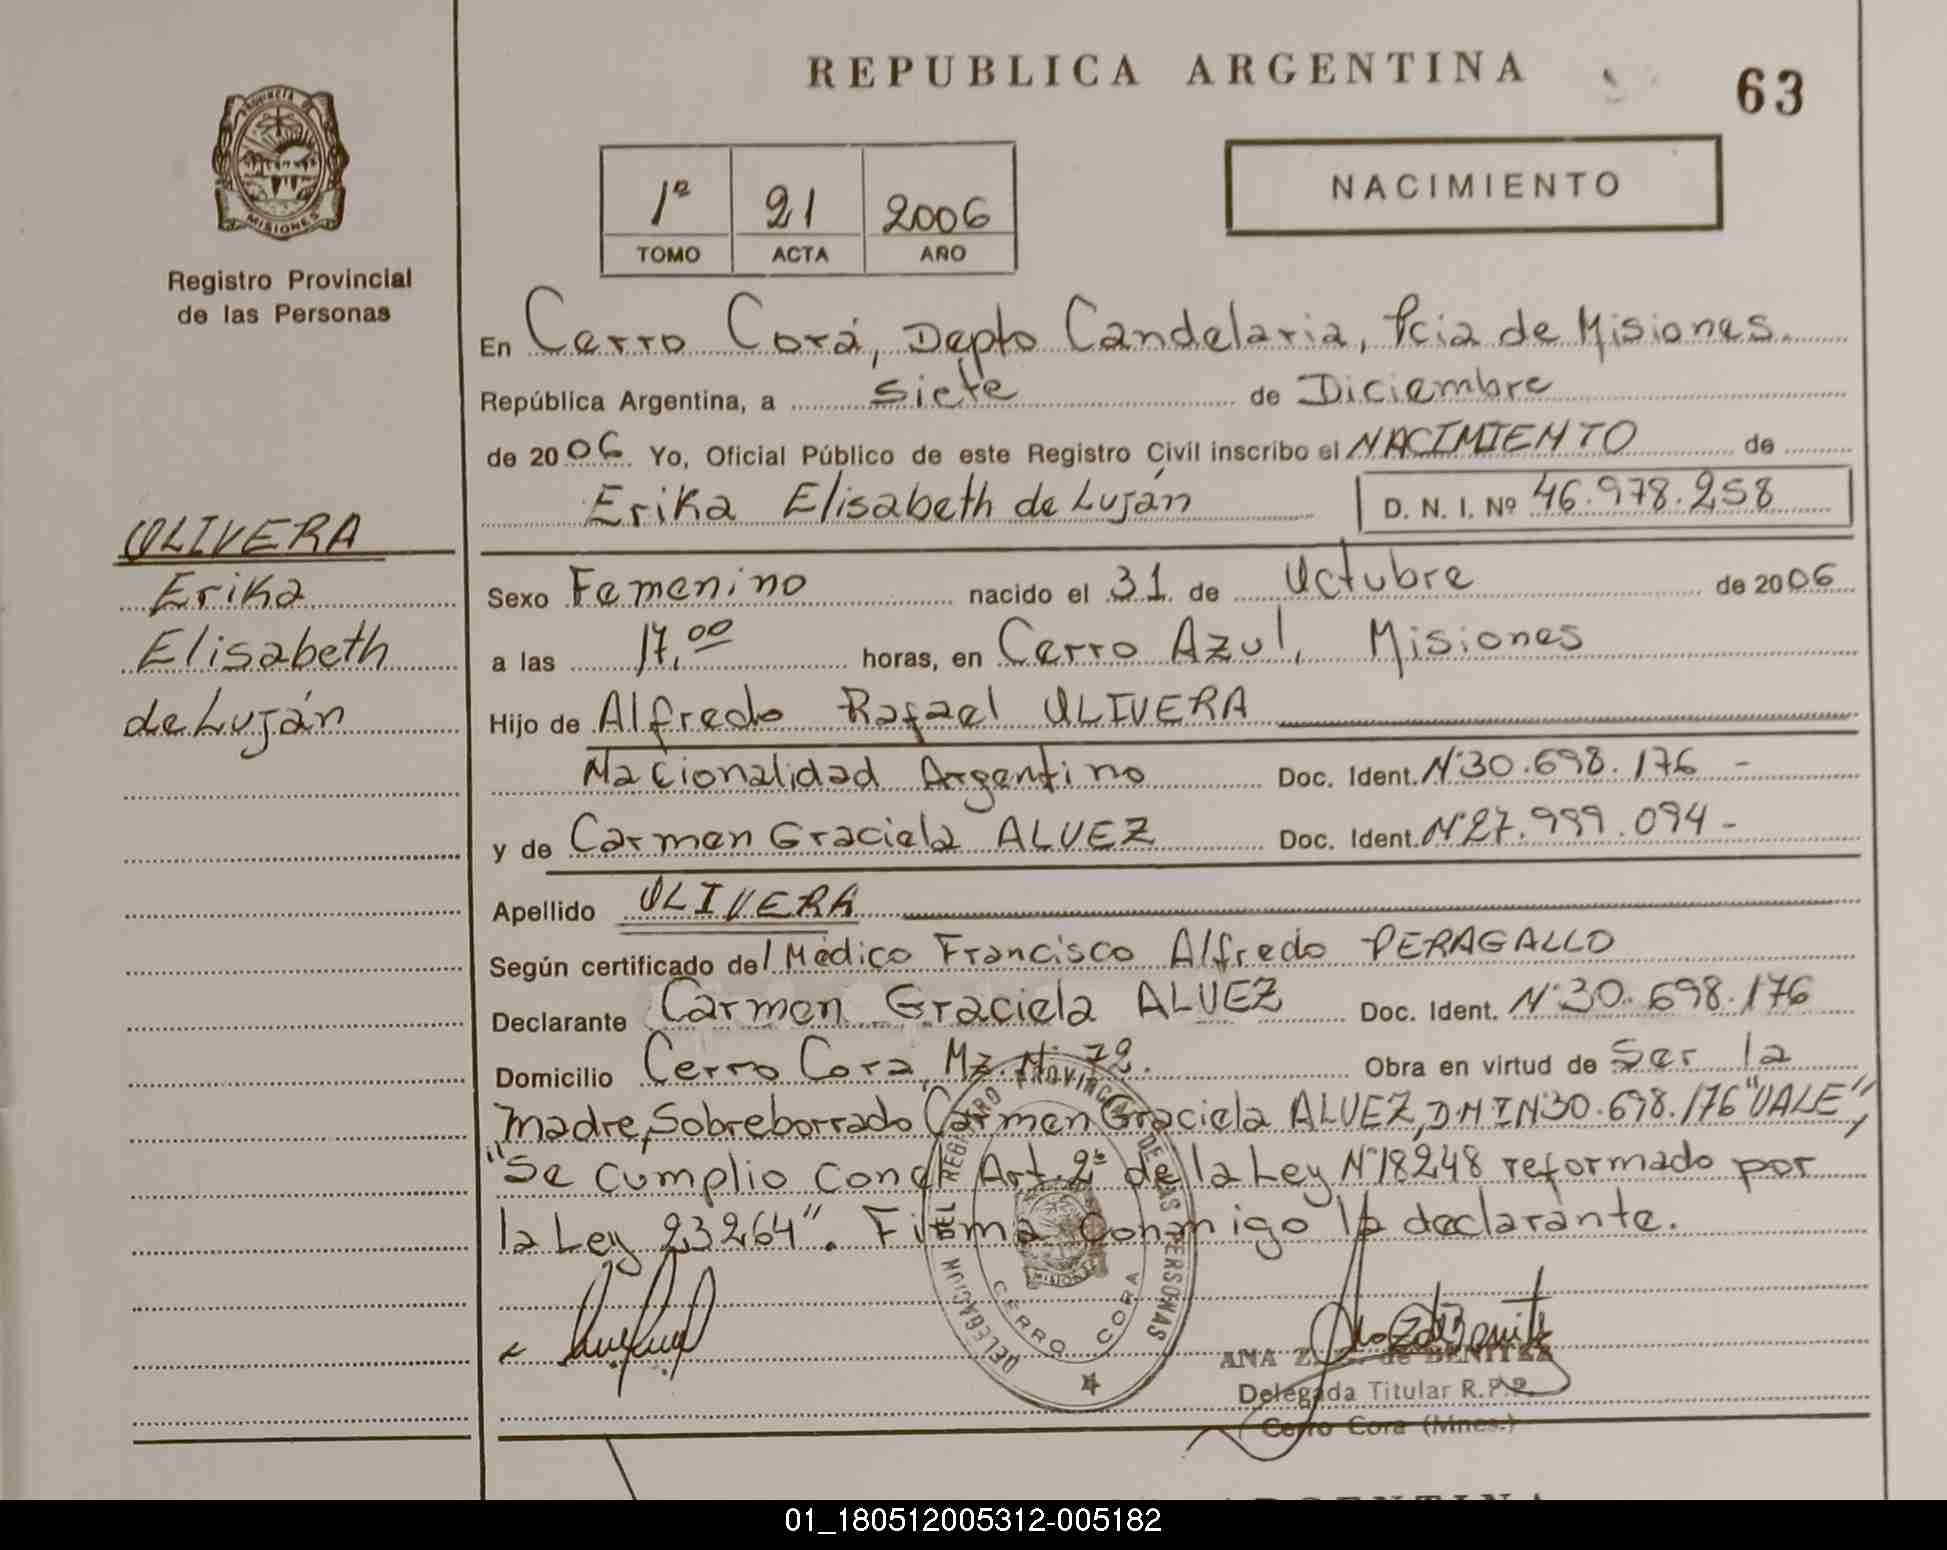 REPUBLICA ARGENTINA
63
PROVINCIA DE
MISIONES
Registro Provincial
de las Personas
1º 21 2006
TOMO ACTA AÑO
NACIMIENTO
En Cerro Corá, Depto Candelaria, Pcia de Misiones.
República Argentina, a siete de Diciembre
de 2006 Yo, Oficial Público de este Registro Civil inscribo el NACIMIENTO de
Erika Elisabeth de Luján D. N. I. Nº 46.978.258
OLIVERA
Erika
Elisabeth
de Luján
Sexo Femenino nacido el 31 de Octubre de 2006
a las 17,00 horas, en Cerro Azul, Misiones
Hijo de Alfredo Rafael OLIVERA
Nacionalidad Argentino Doc. Ident. Nº30.698.176 -
y de Carmen Graciela ALVEZ Doc. Ident. Nº27.999.094 -
Apellido OLIVERA
Según certificado del Médico Francisco Alfredo PERAGALLO
Declarante Carmen Graciela ALVEZ Doc. Ident. Nº30.698.176
Domicilio Cerro Cora, Mz. Nº 72. Obra en virtud de Ser la
madre, Sobreborrado Carmen Graciela ALVEZ, D.N I Nº30.698.176 "VALE",
"Se cumplio con el Art. 2º de la Ley Nº18248 reformado por
la Ley 23264". Firma conmigo la declarante.
DELEGACION DEL REGISTRO PROVINCIAL DE LAS PERSONAS
MISIONES
CERRO CORA
ANA Z. de BENITEZ
Delegada Titular R.P.P.
Cerro Cora (Mnes.)
ARGENTINA
01_180512005312-005182